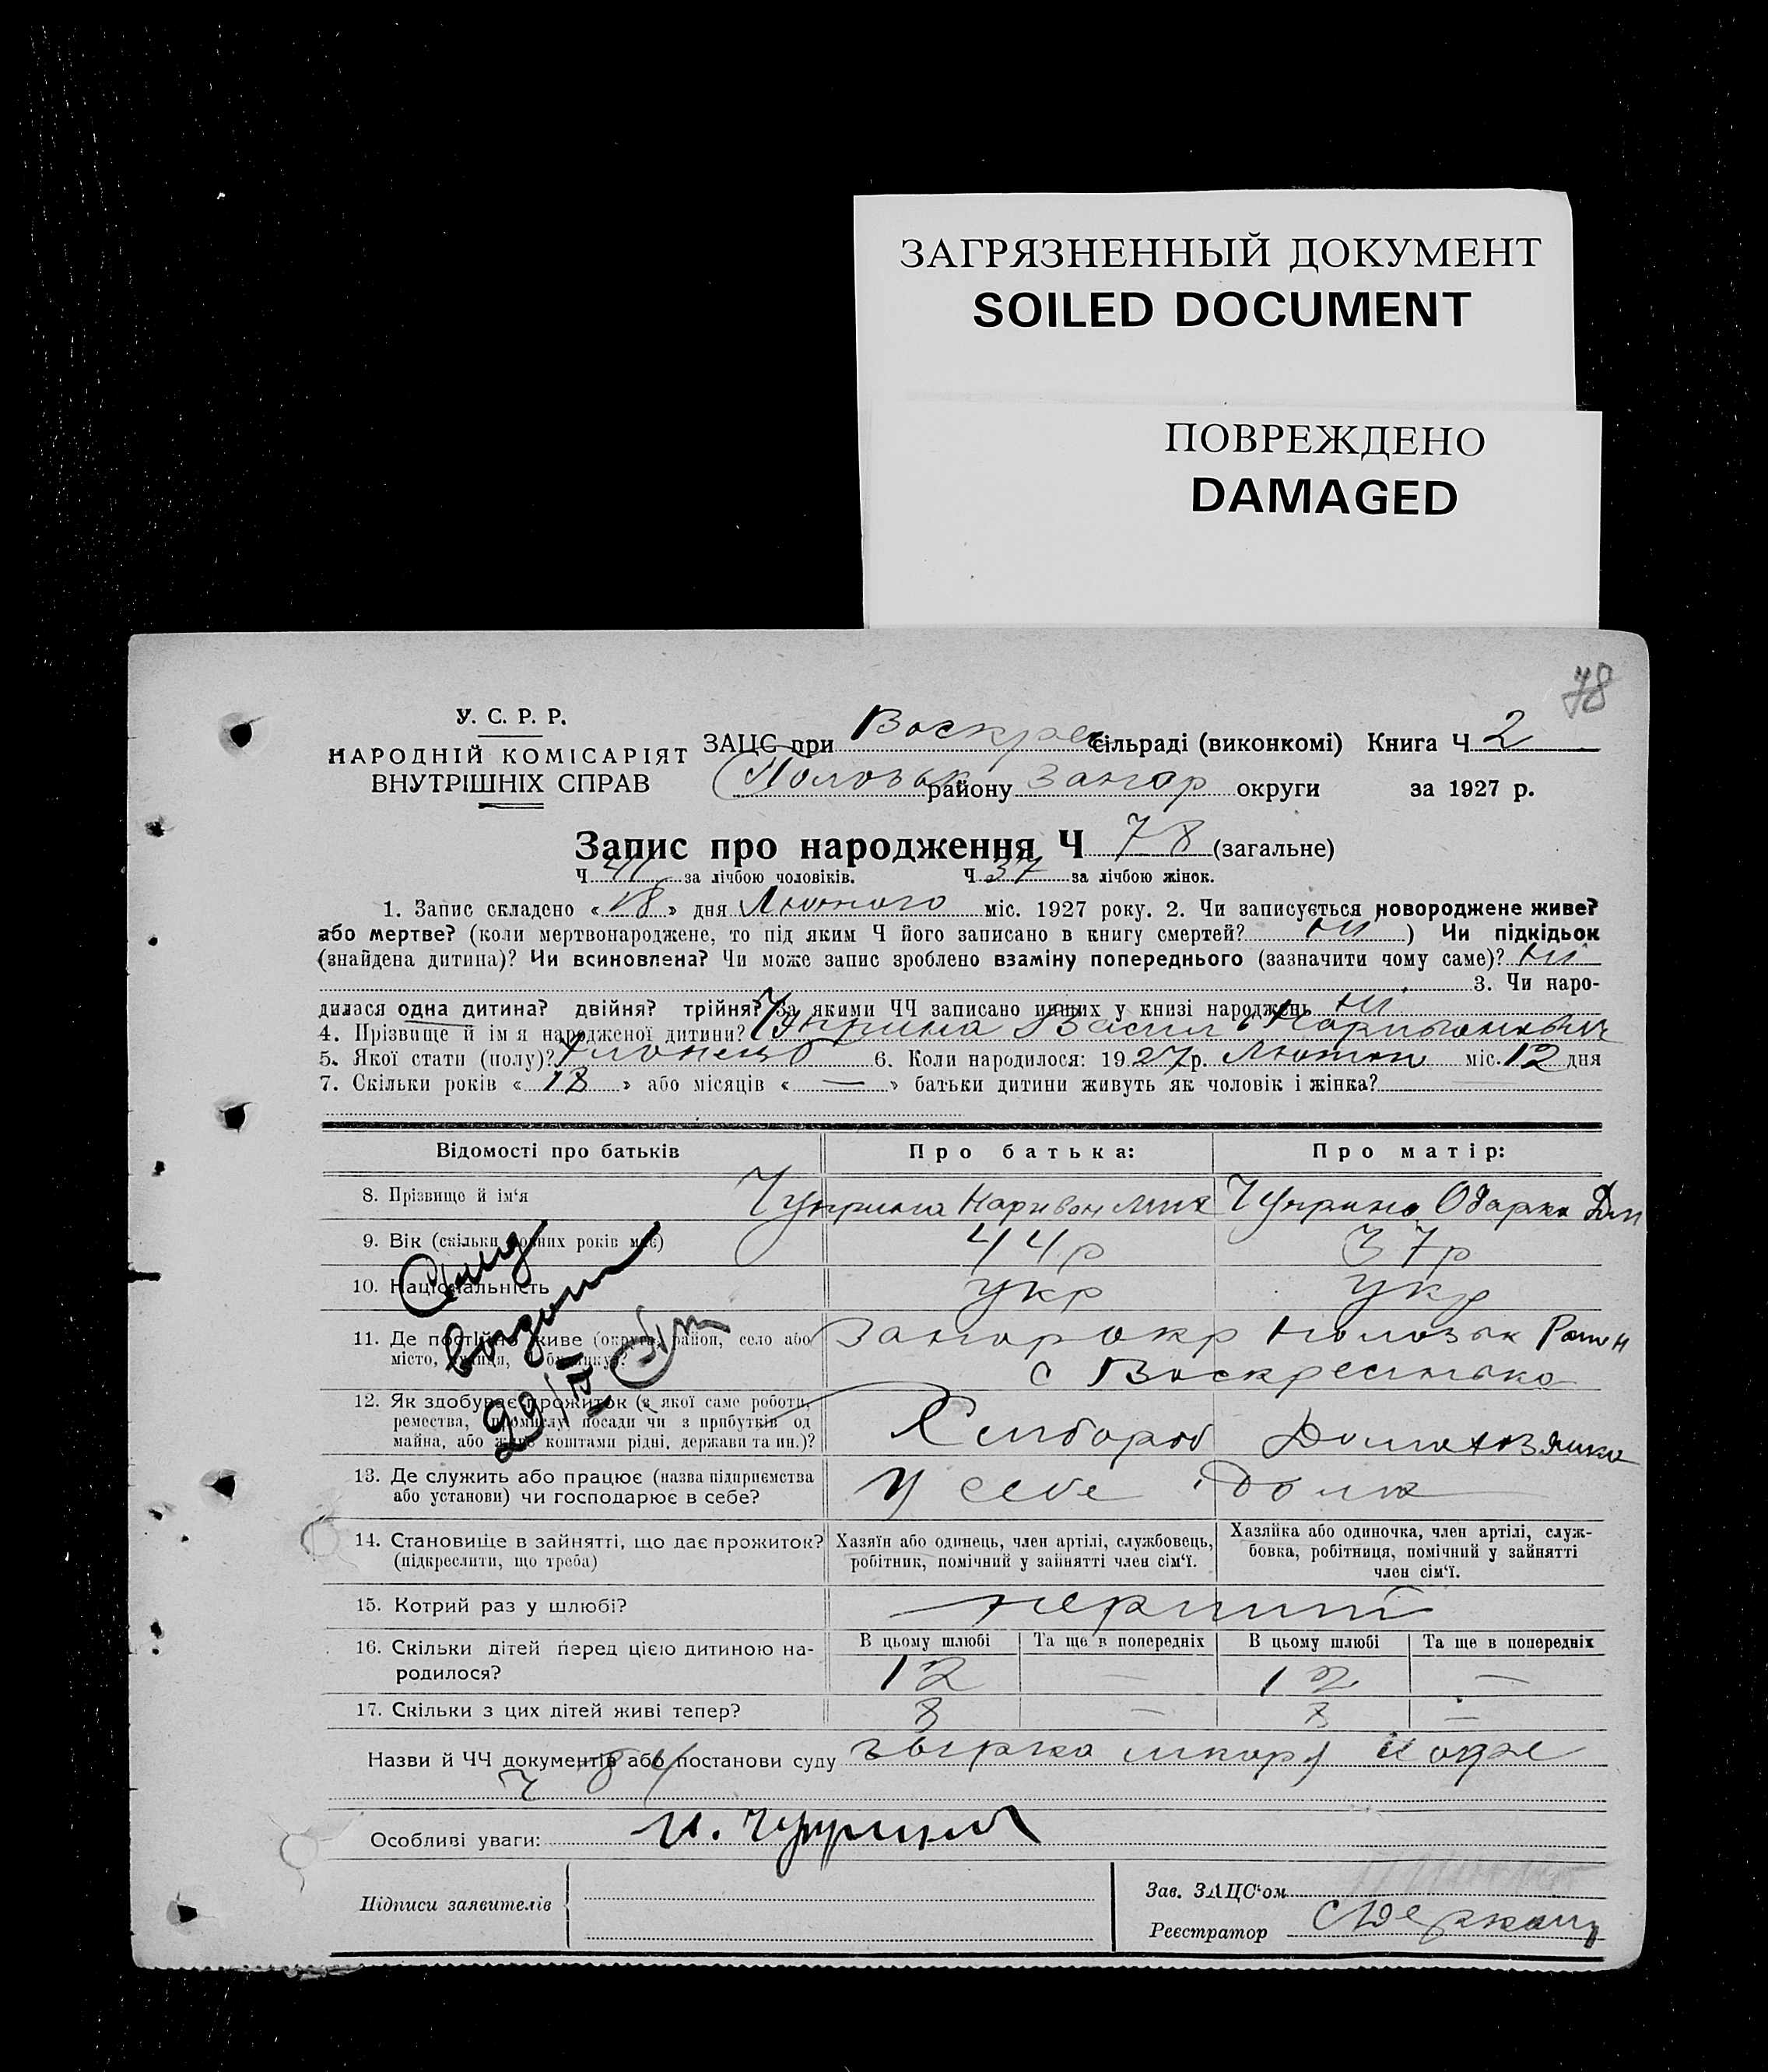 ЗАГРЯЗНЕННЫЙ ДОКУМЕНТ
SOILED DOCUMENT
ПОВРЕЖДЕНО
DAMAGED
78
У. С. Р. Р.
НАРОДНІЙ КОМІСАРІЯТ
ВНУТРІШНІХ СПРАВ
ЗАЦС при Воскрес сільраді (виконкомі) Книга Ч 2
району Запор округи за 1927 р.
Запис про народження Ч 78 (загальне)
Ч 41 за лічбою чоловіків. Ч 37 за лічбою жінок.
1. Запис складено « 18 » дня Лютого міс. 1927 року. 2. Чи записується новороджене живе?
або мертве? (коли мертвонароджене, то під яким Ч його записано в книгу смертей? ні ) Чи підкідьок
(знайдена дитина)? Чи всиновлена? Чи може запис зроблено взаміну попереднього (зазначити чому саме)? ні
3. Чи наро-
дилася одна дитина? двійня? трійня? За якими ЧЧ записано инших у книзі народжень ні
4. Прізвище й ім я народженої дитини? Чуприна Васил
5. Якої стати (полу)? 6. Коли народилося: 1927 р. Лютого міс. 12 дня
7. Скільки років « 18 » або місяців « — » батьки дитини живуть як чоловік і жінка?
Відомості про батьків Про батька: Про матір:
8. Прізвище й ім'я Чуприна Чуприна Одарка
9. Вік (скільки повних років має) 44 р 37 р
10. Національність укр укр
11. Де постійно живе (округа, район, село або Запорокр
місто, вулиця, Ч будинку)? с Воскресинька
12. Як здобуває прожиток (з якої саме роботи,
ремества, промислу, посади чи з прибутків од Хлібороб
майна, або живе коштами рідні, держави та ин.)?
13. Де служить або працює (назва підприємства У себе дома
або установи) чи господарює в себе?
14. Становище в зайнятті, що дає прожиток? Хазяїн або одинець, член артілі, службовець, Хазяйка або одиночка, член артілі, служ-
(підкреслити, що треба) робітник, помічний у зайнятті член сім'ї. бовка, робітниця, помічний у зайнятті
член сім'ї.
15. Котрий раз у шлюбі? перший
16. Скільки дітей перед цією дитиною на- В цьому шлюбі Та ще в попередніх В цьому шлюбі Та ще в попередніх
родилося? 12 — 12 —
17. Скільки з цих дітей живі тепер? 8 — 8 —
Назви й ЧЧ документів або постанови суду
Особливі уваги:
Підписи заявителів
Зав. ЗАЦС'ом
Реєстратор